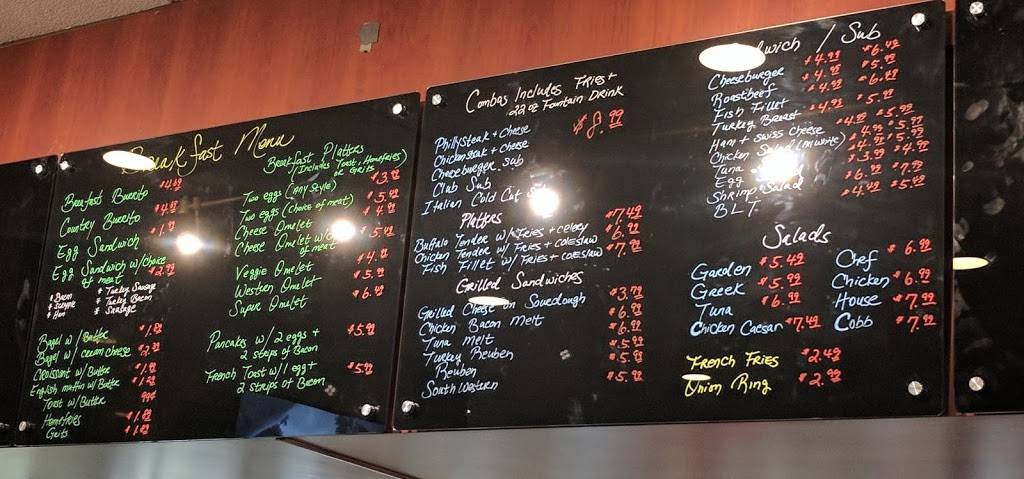 Breakfast Menu
Breakfast Platters
(Includes Toast, Homefries
or Grits)
Breafast Burrito $4.49
Country Burrito $4.99
Egg Sandwich
Egg Sandwich w/choice
of meat $2.99
* Bacon * Turkey Sausage
* Scrapple * Turkey Bacon
* Ham * Sausage
Bagel w/ Butter
Bagel w/ cream cheese
Croissant w/ Butter
English muffin w/ Butter
Toast w/ Butter 99¢
Homefries
Grits
Two eggs (any style) $3.99
Two eggs (choice of meat) $5.99
Cheese Omelet
Cheese Omelet w/choice
of meat $5.49
Veggie Omelet
Western Omelet $5.99
Super Omelet $6.49
Pancakes w/ 2 eggs +
2 strips of Bacon $5.99
French Toast w/ 1 egg +
2 Strips of Bacon $5.99
Combos Includes Fries +
22oz Fountain Drink
$8.99
Phillysteak + Cheese
Chickensteak + Cheese
Cheeseburger Sub
Club Sub
Italian Cold Cut
Platters
Buffalo Tender w/ Fries + celery $7.49
Chicken Tender w/ Fries + coleslaw $6.99
Fish Fillet w/ Fries + coleslaw $7.99
Grilled Sandwiches
Grilled Cheese on Sourdough $3.79
Chicken Bacon Melt $6.99
Tuna Melt $6.99
Turkey Reuben $5.99
Reuben $5.99
Southwestern $5.99
Sandwich / Sub
Cheeseburger $4.99 $6.49
Roastbeef $4.99 $5.99
Fish Fillet $4.99 $6.49
Turkey Breast $4.99 $5.99
Ham + swiss cheese $4.99 $5.99
Chicken Salad (all white) $4.99 $5.99
Tuna
Egg
Shrimp Salad $6.99 $7.99
B.L.T. $4.49 $5.49
Salads
Garden $5.49
Greek $5.99
Tuna $6.99
Chicken Caesar $7.49
Chef $6.99
Chicken $6.99
House $7.99
Cobb $7.99
French Fries $2.49
Onion Ring $2.99